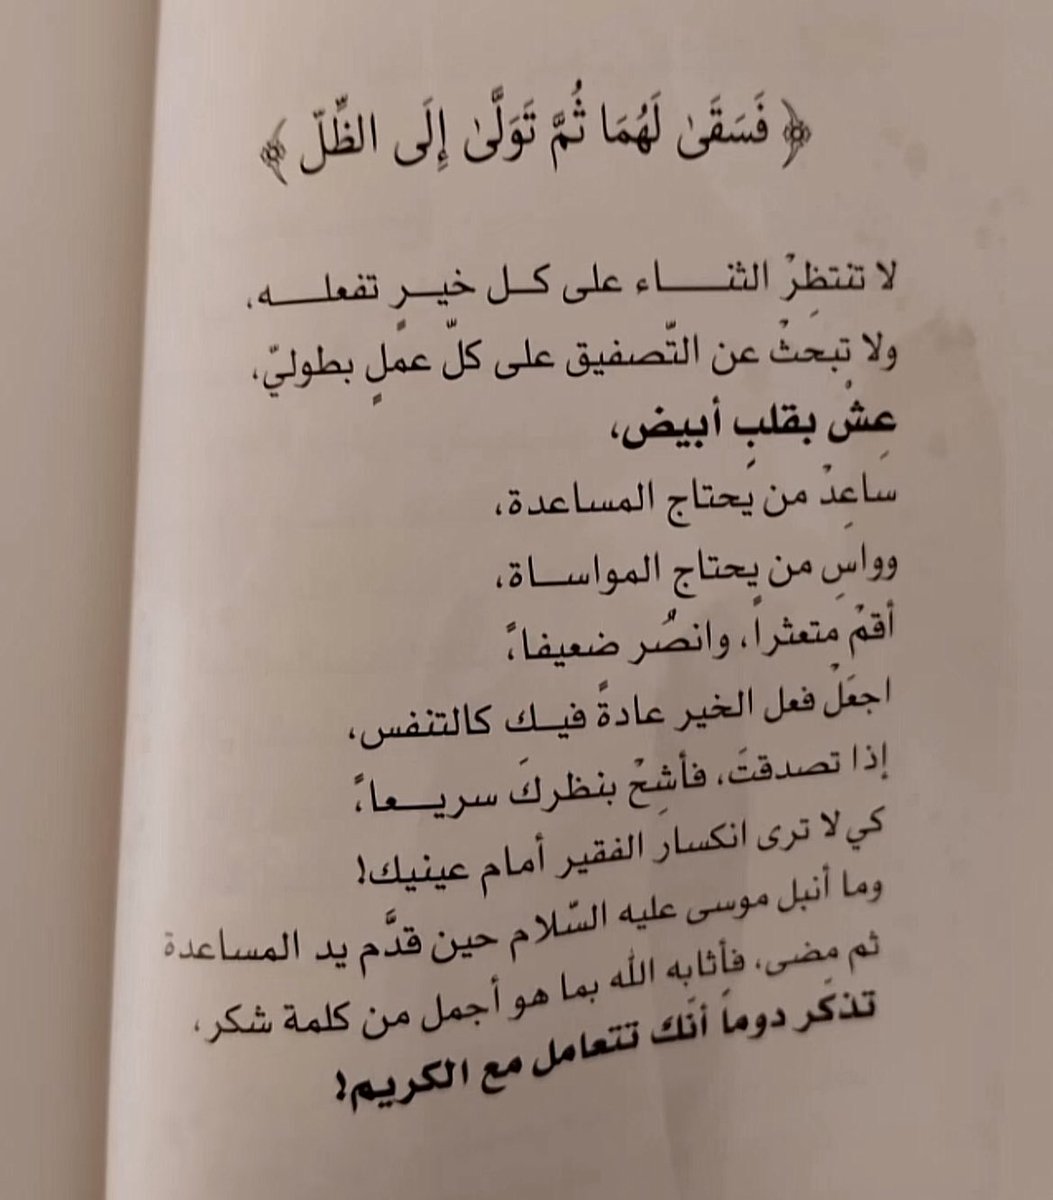 ﴿ فَسَقَىٰ لَهُمَا ثُمَّ تَوَلَّىٰ إِلَى الظِّلّ ﴾
لا تنتظِرْ الثنـــــاء على كـل خيـرٍ تفعلـــــه،
ولا تبحثْ عن التّصفيق على كلّ عملٍ بطوليّ،
عِشْ بقلبٍ أبيض،
ساعِدْ من يَحتاج المساعدة،
وواسِ من يحتاج المواســاة،
أقمْ متعثراً، وانصُر ضعيفاً،
اجعَلْ فعل الخير عادةً فيـك كالتنفس،
إذا تصدقتَ، فأشِحْ بنظركَ سريـــعاً،
كي لا ترى انكسار الفقير أمام عينيك!
وما أنبل موسى عليه السّلام حين قدَّم يد المساعدة
ثم مضى، فأثابه الله بما هو أجمل من كلمة شكر،
تذكَر دوماً أنّك تتعامل مع الكريم!